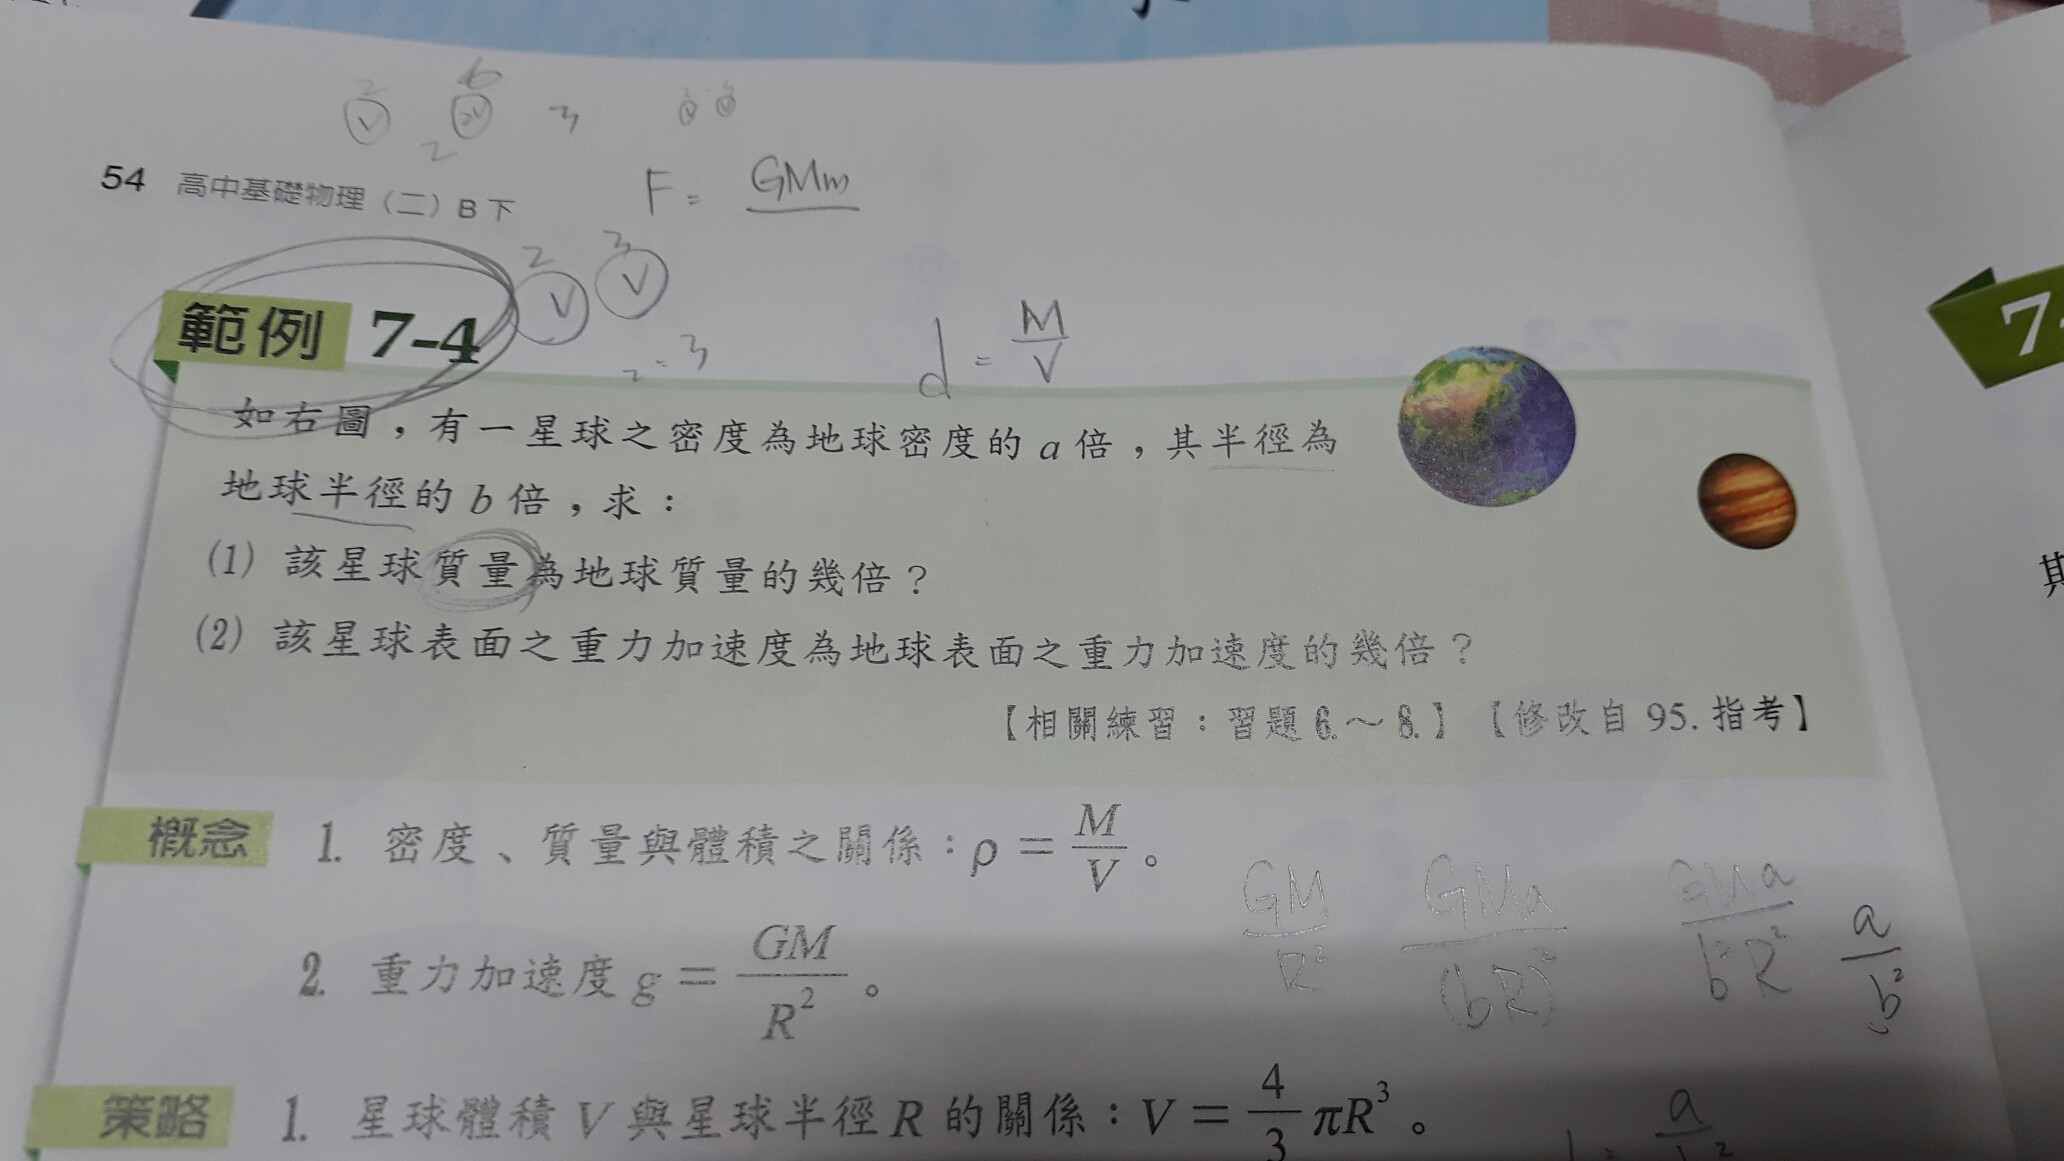 2 6
V 2V 3
2
54 高中基礎物理（二）B下
F = GMm
2 3
V V
範例 7-4
2 = 3
d = M/V
7-
如右圖，有一星球之密度為地球密度的 a 倍，其半徑為
地球半徑的 b 倍，求：
(1) 該星球質量為地球質量的幾倍？
(2) 該星球表面之重力加速度為地球表面之重力加速度的幾倍？
【相關練習：習題 6.～8.】【修改自 95. 指考】
概念 1. 密度、質量與體積之關係：ρ = M/V。
2. 重力加速度 g = GM/R²。
GM/R² GMa/(bR)² GMa/b²R² a/b²
策略 1. 星球體積 V 與星球半徑 R 的關係：V = 4/3 πR³。
a